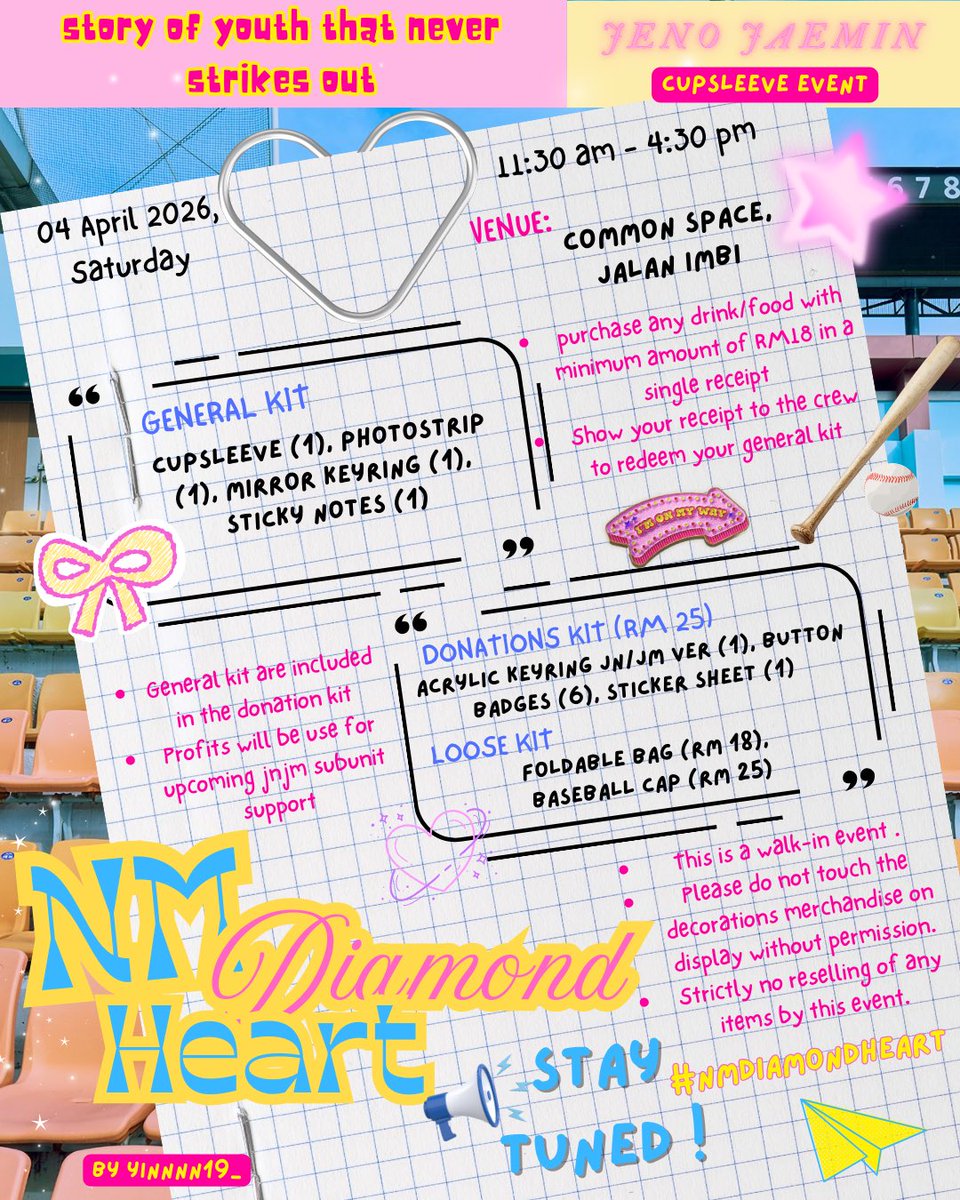 story of youth that never
strikes out
JENO JAEMIN
CUPSLEEVE EVENT
04 April 2026,
Saturday
11:30 am - 4:30 pm
VENUE:
COMMON SPACE,
JALAN IMBI
6 7 8
• purchase any drink/food with
minimum amount of RM18 in a
single receipt
• Show your receipt to the crew
to redeem your general kit
❝
GENERAL KIT
CUPSLEEVE (1), PHOTOSTRIP
(1), MIRROR KEYRING (1),
STICKY NOTES (1)
❞
I'M ON MY WAY
❝
DONATIONS KIT (RM 25)
ACRYLIC KEYRING JN/JM VER (1), BUTTON
BADGES (6), STICKER SHEET (1)
LOOSE KIT
FOLDABLE BAG (RM 18),
BASEBALL CAP (RM 25)
❞
• General kit are included
in the donation kit
• Profits will be use for
upcoming jnjm subunit
support
• This is a walk-in event .
• Please do not touch the
decorations merchandise on
display without permission.
• Strictly no reselling of any
items by this event.
NM
Diamond
Heart
STAY
TUNED !
#NMDIAMONDHEART
BY YINNNN19_